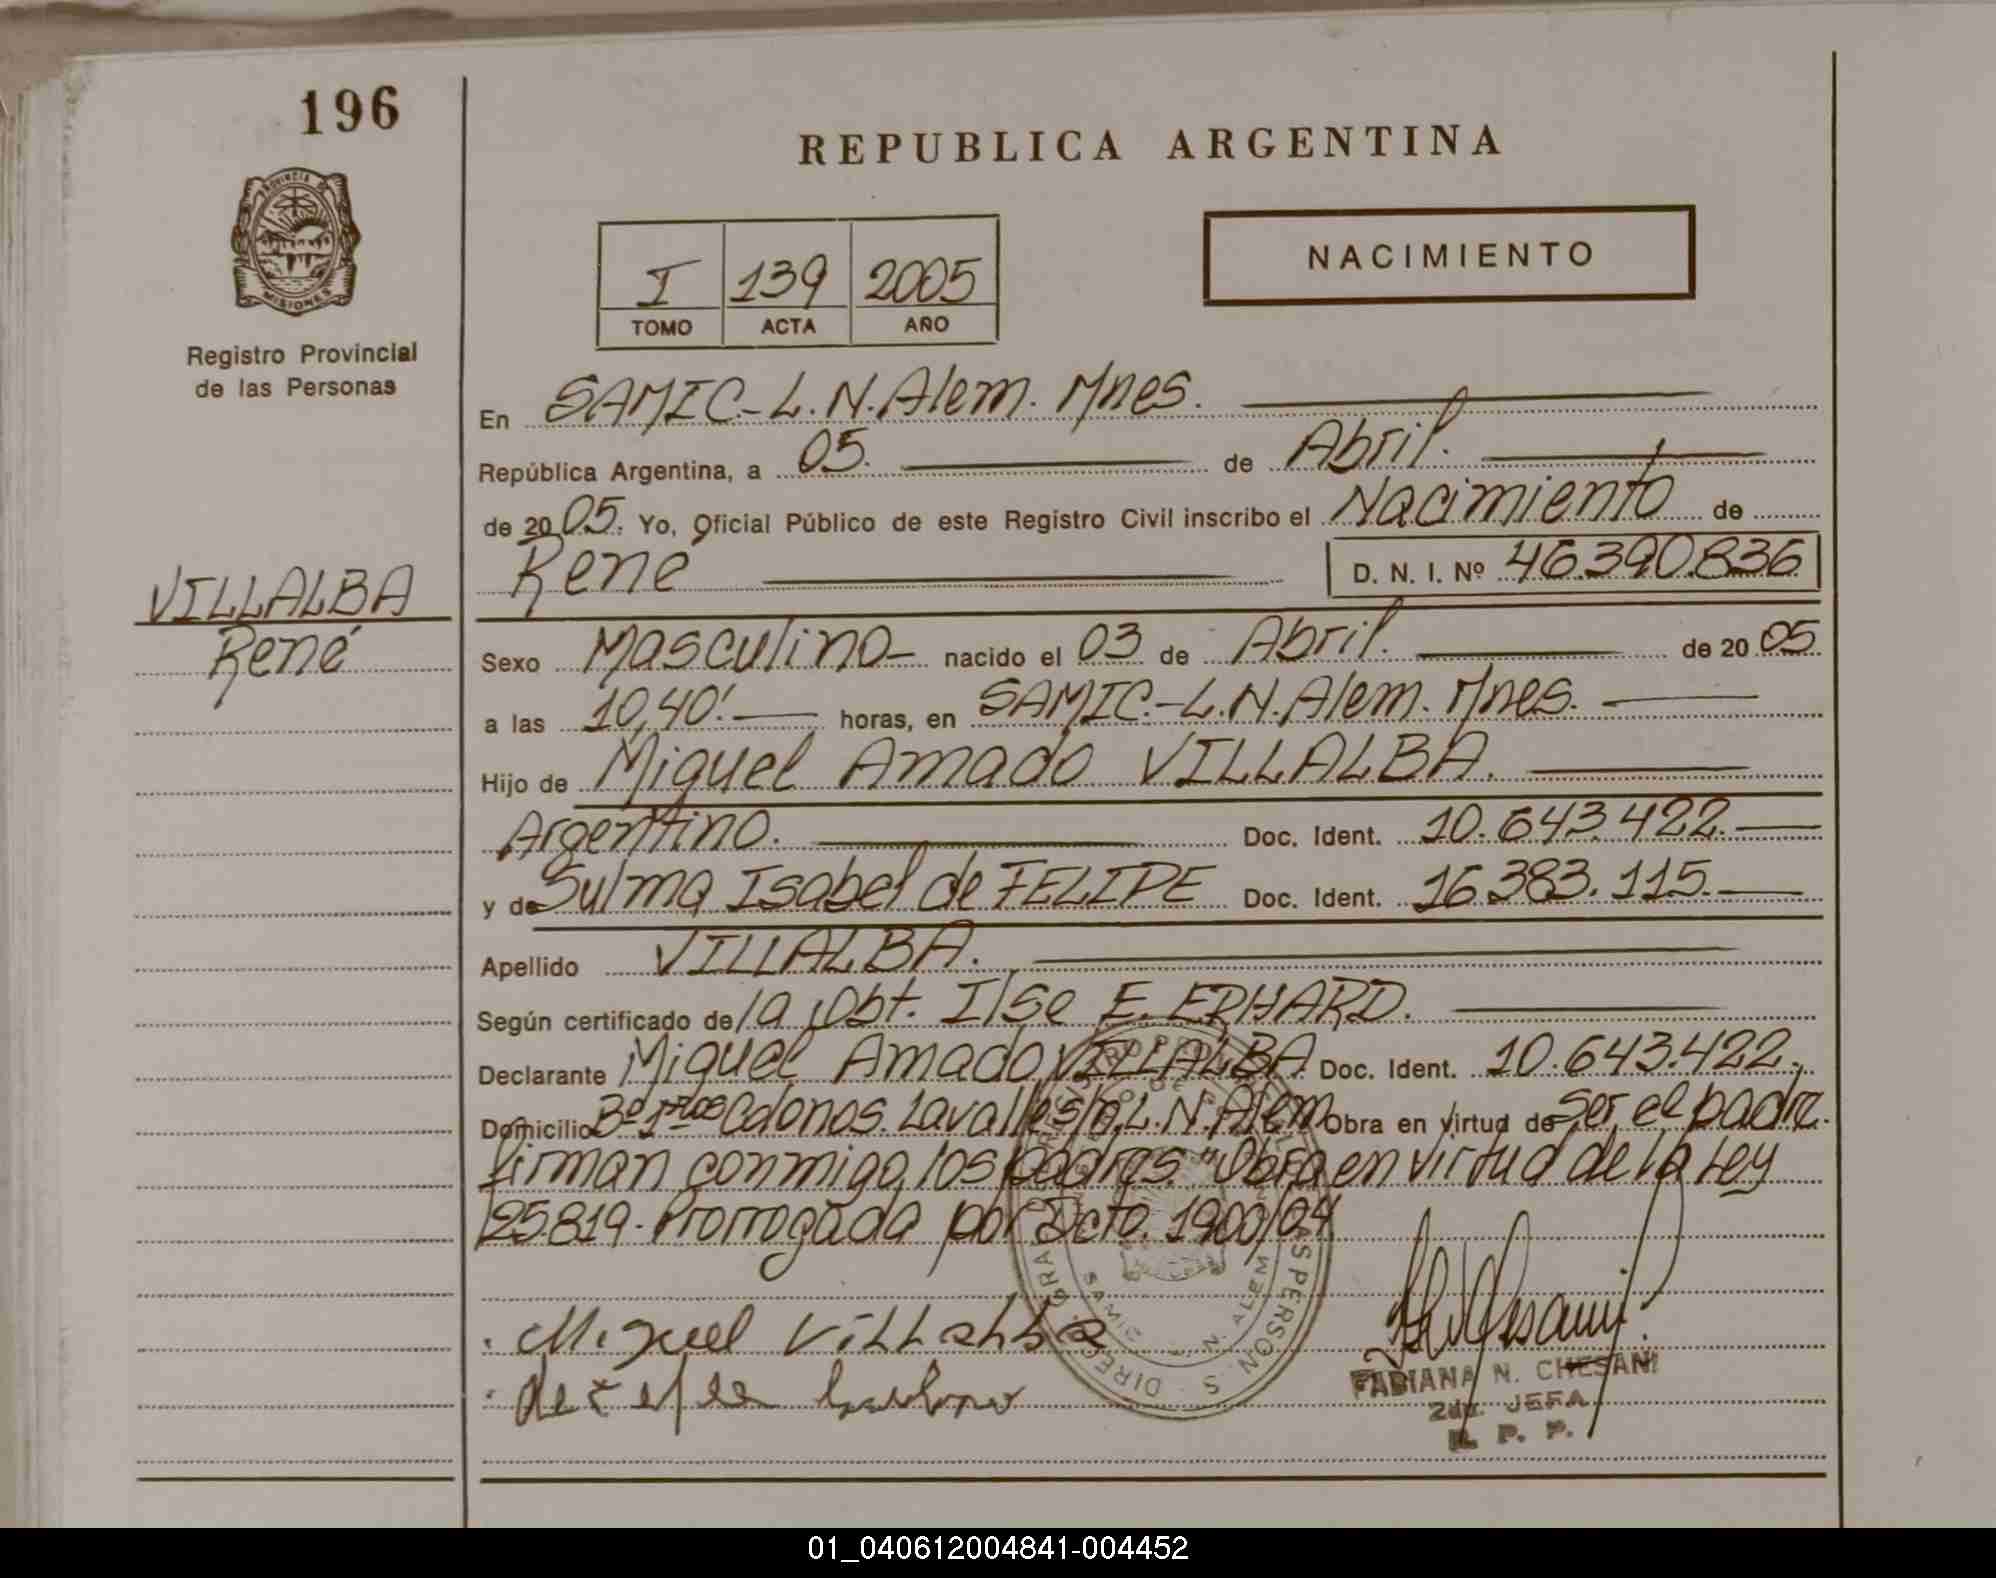 196
REPUBLICA ARGENTINA
NACIMIENTO
PROVINCIA DE
MISIONES
I 139 2005
TOMO ACTA AÑO
Registro Provincial
de las Personas
En SAMIC.-L.N.Alem. Mnes.
República Argentina, a 05. de Abril.
de 2005. Yo, Oficial Público de este Registro Civil inscribo el Nacimiento de
René D. N. I. Nº 46.390.836
VILLALBA
René
Sexo Masculino- nacido el 03 de Abril. de 2005.
a las 10,40'. horas, en SAMIC.-L.N.Alem. Mnes.
Hijo de Miguel Amado VILLALBA.
Argentino. Doc. Ident. 10.643.422.
y de Sulma Isabel de FELIPE Doc. Ident. 16.383.115.
Apellido VILLALBA.
Según certificado de la Obt. Ilse E. ERHARD.
Declarante Miguel Amado VILLALBA. Doc. Ident. 10.643.422.
Domicilio Bº 1ros Colonos. Lavalle s/n, L.N. Alem Obra en virtud de Ser el padre.
firman conmigo los padres. "Obra en virtud de la Ley
25.819- Prorrogada por Dcto. 1900/04
Miguel Villalba
FABIANA N. CHESANI
2da. JEFA
R. P. P.
SAMIC L. N. ALEM
01_040612004841-004452